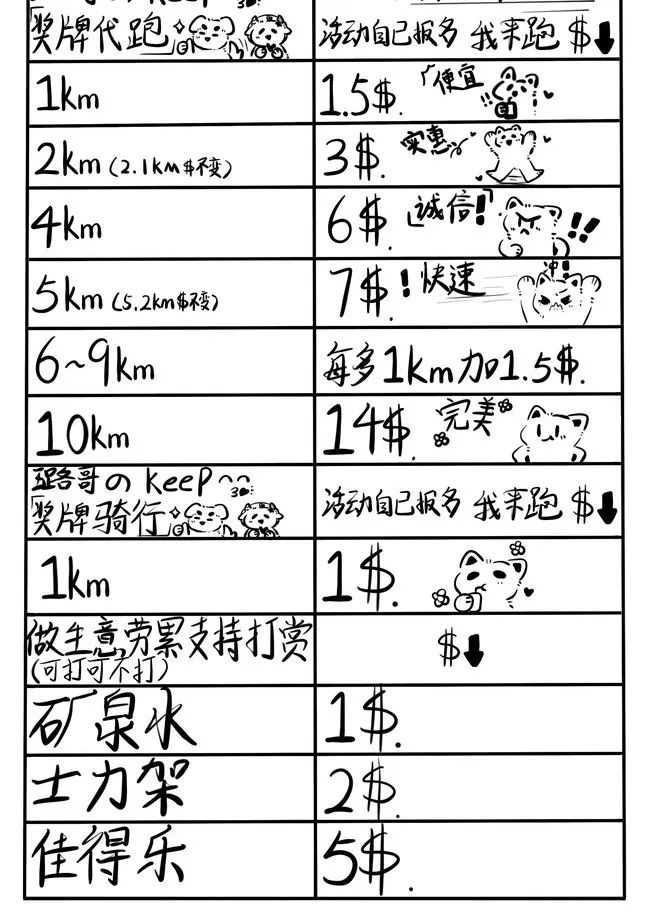 奖牌代跑
活动自己报名 我来跑 $⬇
1km
1.5$. 「便宜 !!
2km (2.1km$不变)
3$. 实惠
4km
6$. 「诚信!」 !!
5km (5.2km$不变)
7$. ! 快速 冲!
6~9km
每多1km加1.5$.
10km
14$. 完美
路哥の Keep
「奖牌骑行
活动自己报名 我来跑 $⬇
1km
1$.
做生意劳累支持打赏
(可打可不打)
$⬇
矿泉水
1$.
士力架
2$.
佳得乐
5$.